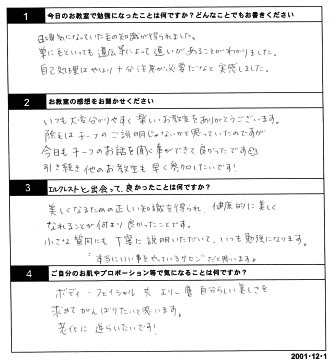 1 今日のお教室で勉強になったことは何ですか？どんなことでもお書きください
日頃気になっていた毛の知識が得られました。
単に毛といっても遺伝等によって違いがあることがわかりました。
自己処理はやはり十分注意が必要だなと実感しました。
2 お教室の感想をお聞かせください
いつも大変分かりやすく楽しいお教室をありがとうございます。
除毛はチーフのご説明じゃないかと思っていたのですが
今日もチーフのお話を聞く事ができて良かったです
引き続き他のお教室も早く参加したいです！
3 エルクレストと出会って、良かったことは何ですか？
美しくなるための正しい知識を得られ、健康的に美しく
なれることが何より良かったことです。
小さな質問にも丁寧に説明いただいて、いつも勉強になります。
"本当にいい事をやれているサロン"だと思います。
4 ご自分のお肌やプロポーション等で気になることは何ですか？
ボディ・フェイシャル共、より一層自分らしい美しさを
求めてがんばりたいと思います。
老化に逆らいたいです！
2001・12・1